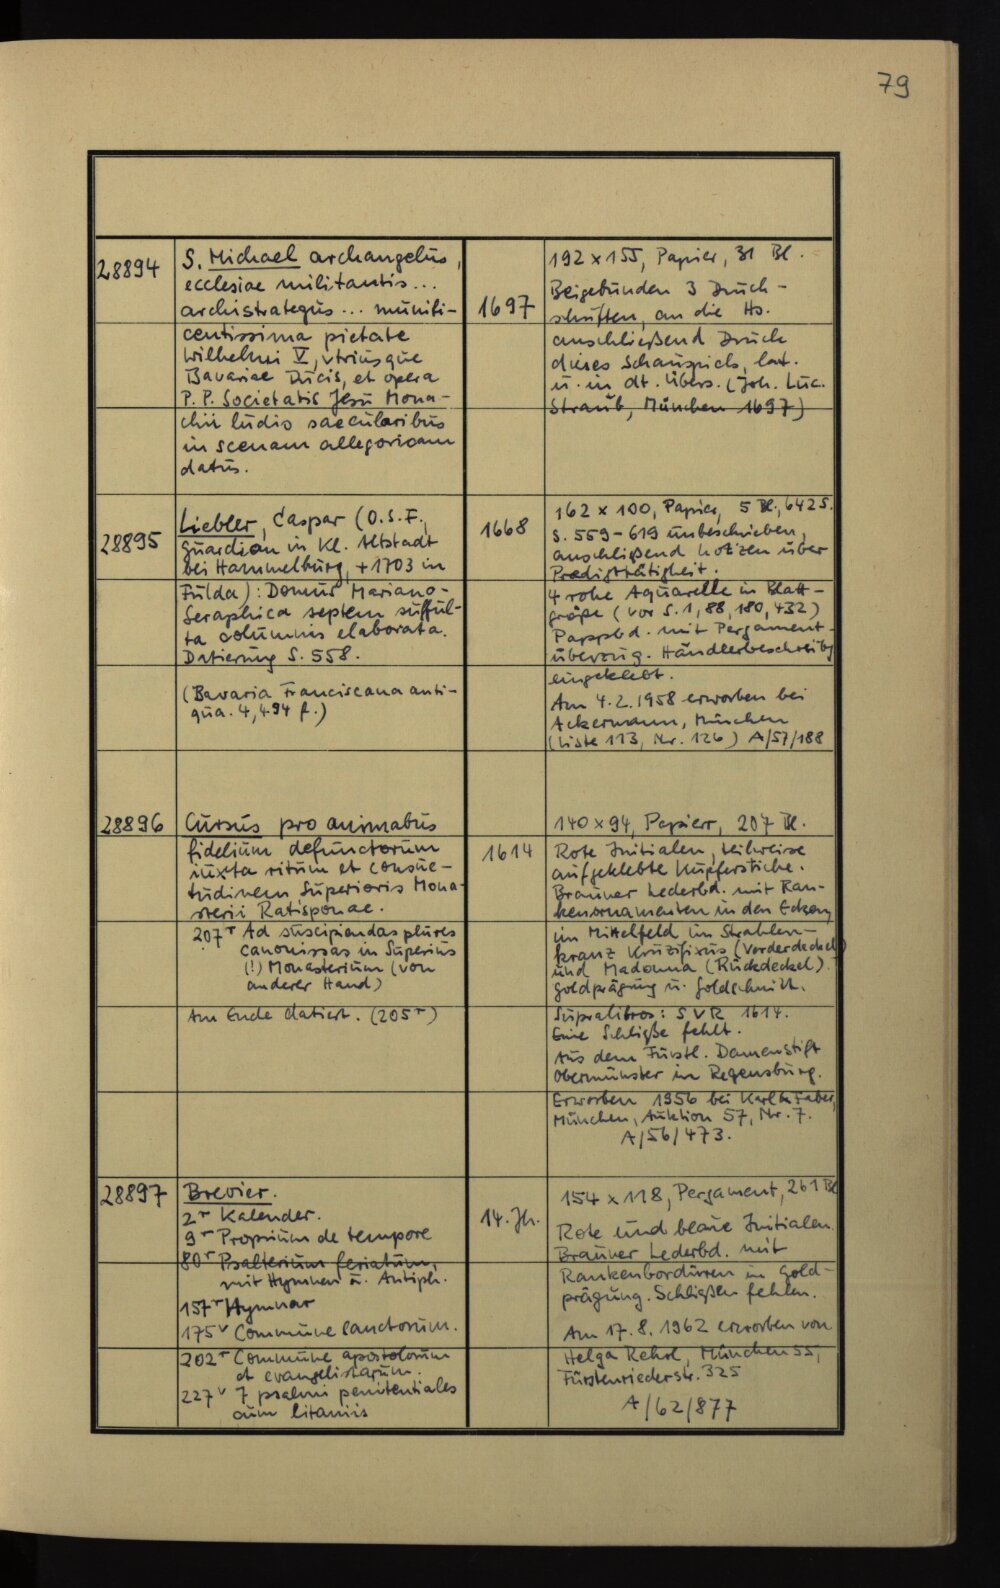 79
28894
S. Michael archangelus,
ecclesiae militantis...
archistrategus... munifi-
centissima pietate
Wilhelmi V, vtriusque
Bavariae Ducis, et opera
P. P. Societatis Jesu Mona-
chii ludis saecularibus
in scenam allegoricam
datus.
1697
192 x 155, Papier, 31 Bl.
Beigebunden 3 Druck-
schriften, an die Hs.
anschließend Druck
dieses Schauspiels, lat.
u. in dt. Übers. (Joh. Luc.
Straub, München 1697)
28895
Liebler, Caspar (O.S.F.,
Guardian in Kl. Altstadt
bei Hammelburg, +1703 in
Fulda): Domus Mariano-
Seraphica septem sufful-
ta columnis elaborata.
Datierung S. 558.
(Bavaria Franciscana anti-
qua. 4, 494 f.)
1668
162 x 100, Papier, 5 Bl., 642 S.
S. 559-619 unbeschrieben,
anschließend Notizen über
Predigttätigkeit.
4 rohe Aquarelle in Blatt-
größe (vor S. 1, 88, 180, 432)
Pappbd. mit Pergament-
überzug. Händlerbeschreibg
eingeklebt.
Am 4.2.1958 erworben bei
Ackermann, München
(Liste 113, Nr. 126) A/57/188
28896
Cursus pro animabus
fidelium defunctorum
iuxta ritum et consue-
tudinem Superioris Mona-
sterii Ratisponae.
207r Ad suscipiendas plures
canonissas in Superius
(!) Monasterium (von
anderer Hand)
Am Ende datiert. (205r)
1614
140 x 94, Papier, 207 Bl.
Rote Initialen, teilweise
aufgeklebte Kupferstiche.
Brauner Lederbd. mit Ran-
kenornamenten in den Ecken,
im Mittelfeld im Strahlen-
kranz Kruzifixus (Vorderdeckel)
und Madonna (Rückdeckel).
Goldprägung u. Goldschnitt.
Supralibros: S V R 1614.
Eine Schließe fehlt.
Aus dem Fürstl. Damenstift
Obermünster in Regensburg.
Erworben 1956 bei Karl & Faber,
München, Auktion 57, Nr. 7.
A/56/473.
28897
Brevier.
2r Kalender.
9r Proprium de tempore
80r Psalterium feriatum,
mit Hymnen u. Antiph.
157r Hymnar
175v Commune sanctorum.
202r Commune apostolorum
et evangelistarum.
227v 7 psalmi penitentiales
cum litaniis
14. Jh.
154 x 118, Pergament, 261 Bl
Rote und blaue Initialen.
Brauner Lederbd. mit
Rankenbordüren in Gold-
prägung. Schließen fehlen.
Am 17.8.1962 erworben von
Helga Rehrl, München 55,
Fürstenriederstr. 325
A/62/877